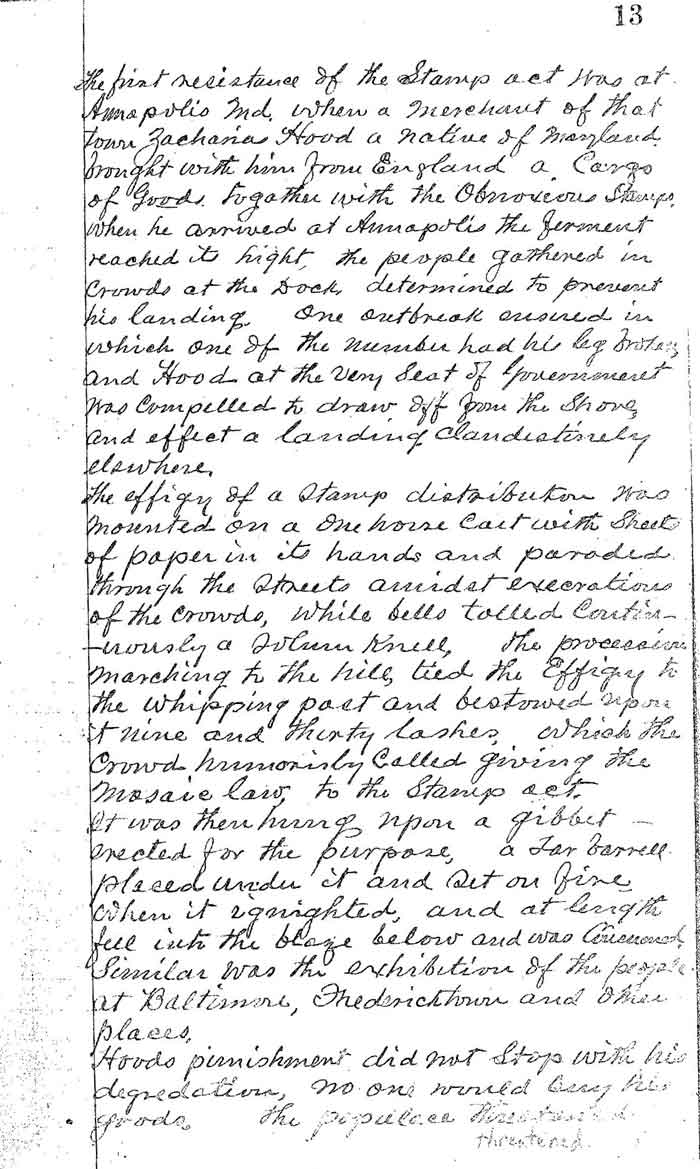 13
the first resistance of the Stamp act was at
Annapolis Md. when a Merchant of that
town Zacharia Hood a native of Maryland
brought with him from England a Cargo
of Goods together with the Obnoxeous Stamps,
when he arrived at Annapolis the ferment
reached its hight, the people gathered in
Crowds at the Dock, determined to prevent
his landing. One outbreak ensured in
which one of the number had his leg broken,
and Hood at the Very Seat of Government
was Compelled to draw off from the Shore,
and effect a landing Clandestinely
elsewhere.
The effigy of a Stamp distributon was
mounted on a One horse Cart with Sheets
of paper in its hands and paraded
through the Streets amidst execrations
of the Crowds, while bells tolled Contin-
-uously a Solum Knell, the procession
marching to the hill, tied the Effigy to
the whipping post and bestowed upon
it nine and thirty lashes, which the
Crowd humorisly Called giving the
Mosaic law, to the Stamp act.
It was then hung upon a gibbet -
erected for the purpose, a Tar barrell
placed under it and Set on fire
when it ignighted, and at length
fell into the blaze below and was Consumed,
Similar was the exhibition of the people
at Baltimore, Fredericktown and Other
places,
Hoods punishment did not Stop with his
degredation, no one would buy his
goods, the populace threatened
threatened